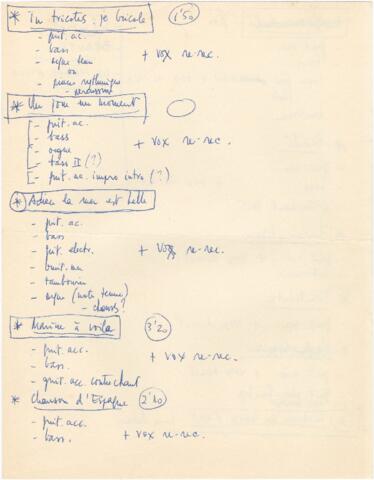 * Tu tricotes, je bricole 1'50
- guit. ac.
- bass + vox re-rec.
- orgue
ou
- piano rythmique
- percussion
* Un jour un moment
- guit. ac.
- bass + vox re-rec.
- orgue
- bass II (?)
- guit. ac. impro intro (?)
* Adieu la mer est belle
- guit. ac.
- bass
- guit. electr. + vox re-rec.
- tambourin
- orgue (note tenue)
- choeurs?
* Marine à voiles 3'20
- guit. acc.
- bass. + vox re-rec.
- guit. acc. contrechant
* Chanson d'Espagne 2'10
- guit. acc.
- bass. + vox re-rec.